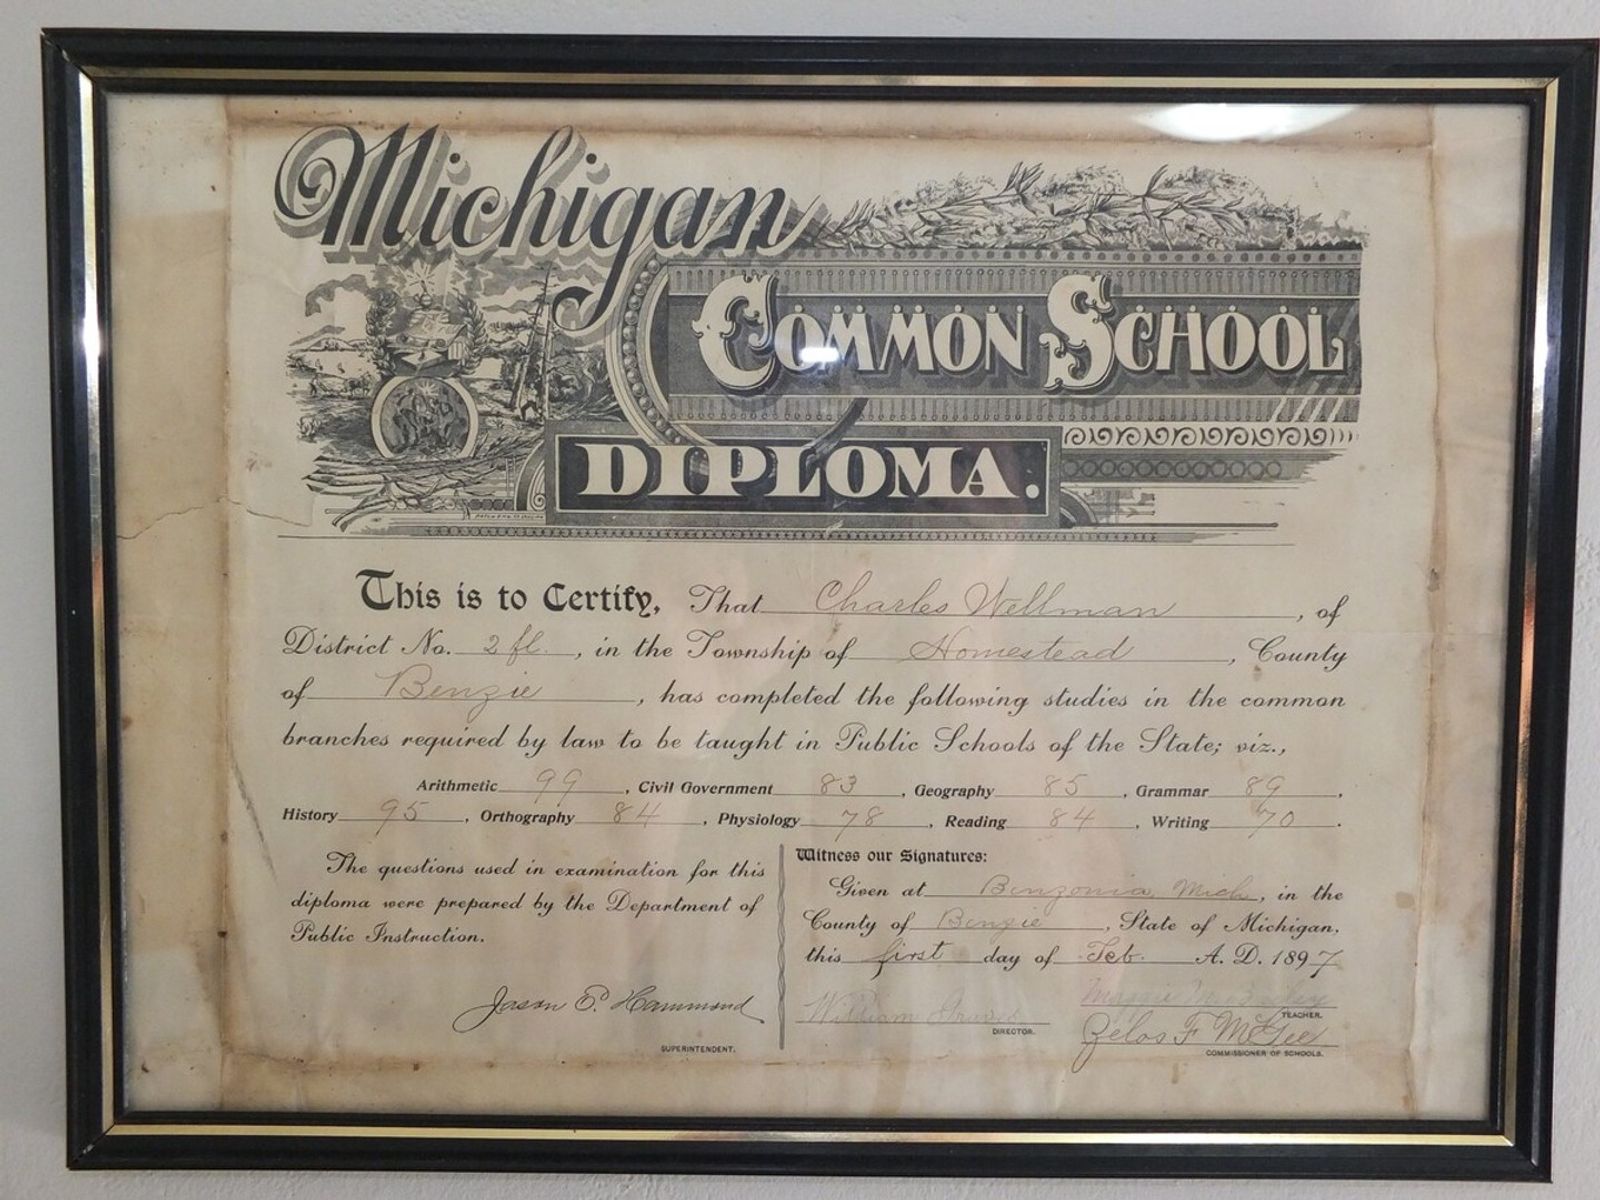 Michigan
COMMON SCHOOL
DIPLOMA.
This is to Certify, That Charles Wellman, of
District No. 2 fl., in the Township of Homestead, County
of Benzie, has completed the following studies in the common
branches required by law to be taught in Public Schools of the State; viz.,
Arithmetic 99, Civil Government 83, Geography 85, Grammar 89,
History 95, Orthography 84, Physiology 78, Reading 84, Writing 70.
The questions used in examination for this
diploma were prepared by the Department of
Public Instruction.
Jason E. Hammond
SUPERINTENDENT.
Witness our Signatures:
Given at Benzonia, Mich, in the
County of Benzie, State of Michigan,
this first day of Feb. A. D. 1897
William
DIRECTOR.
Maggie
TEACHER.
Zelos F McGee
COMMISSIONER OF SCHOOLS.